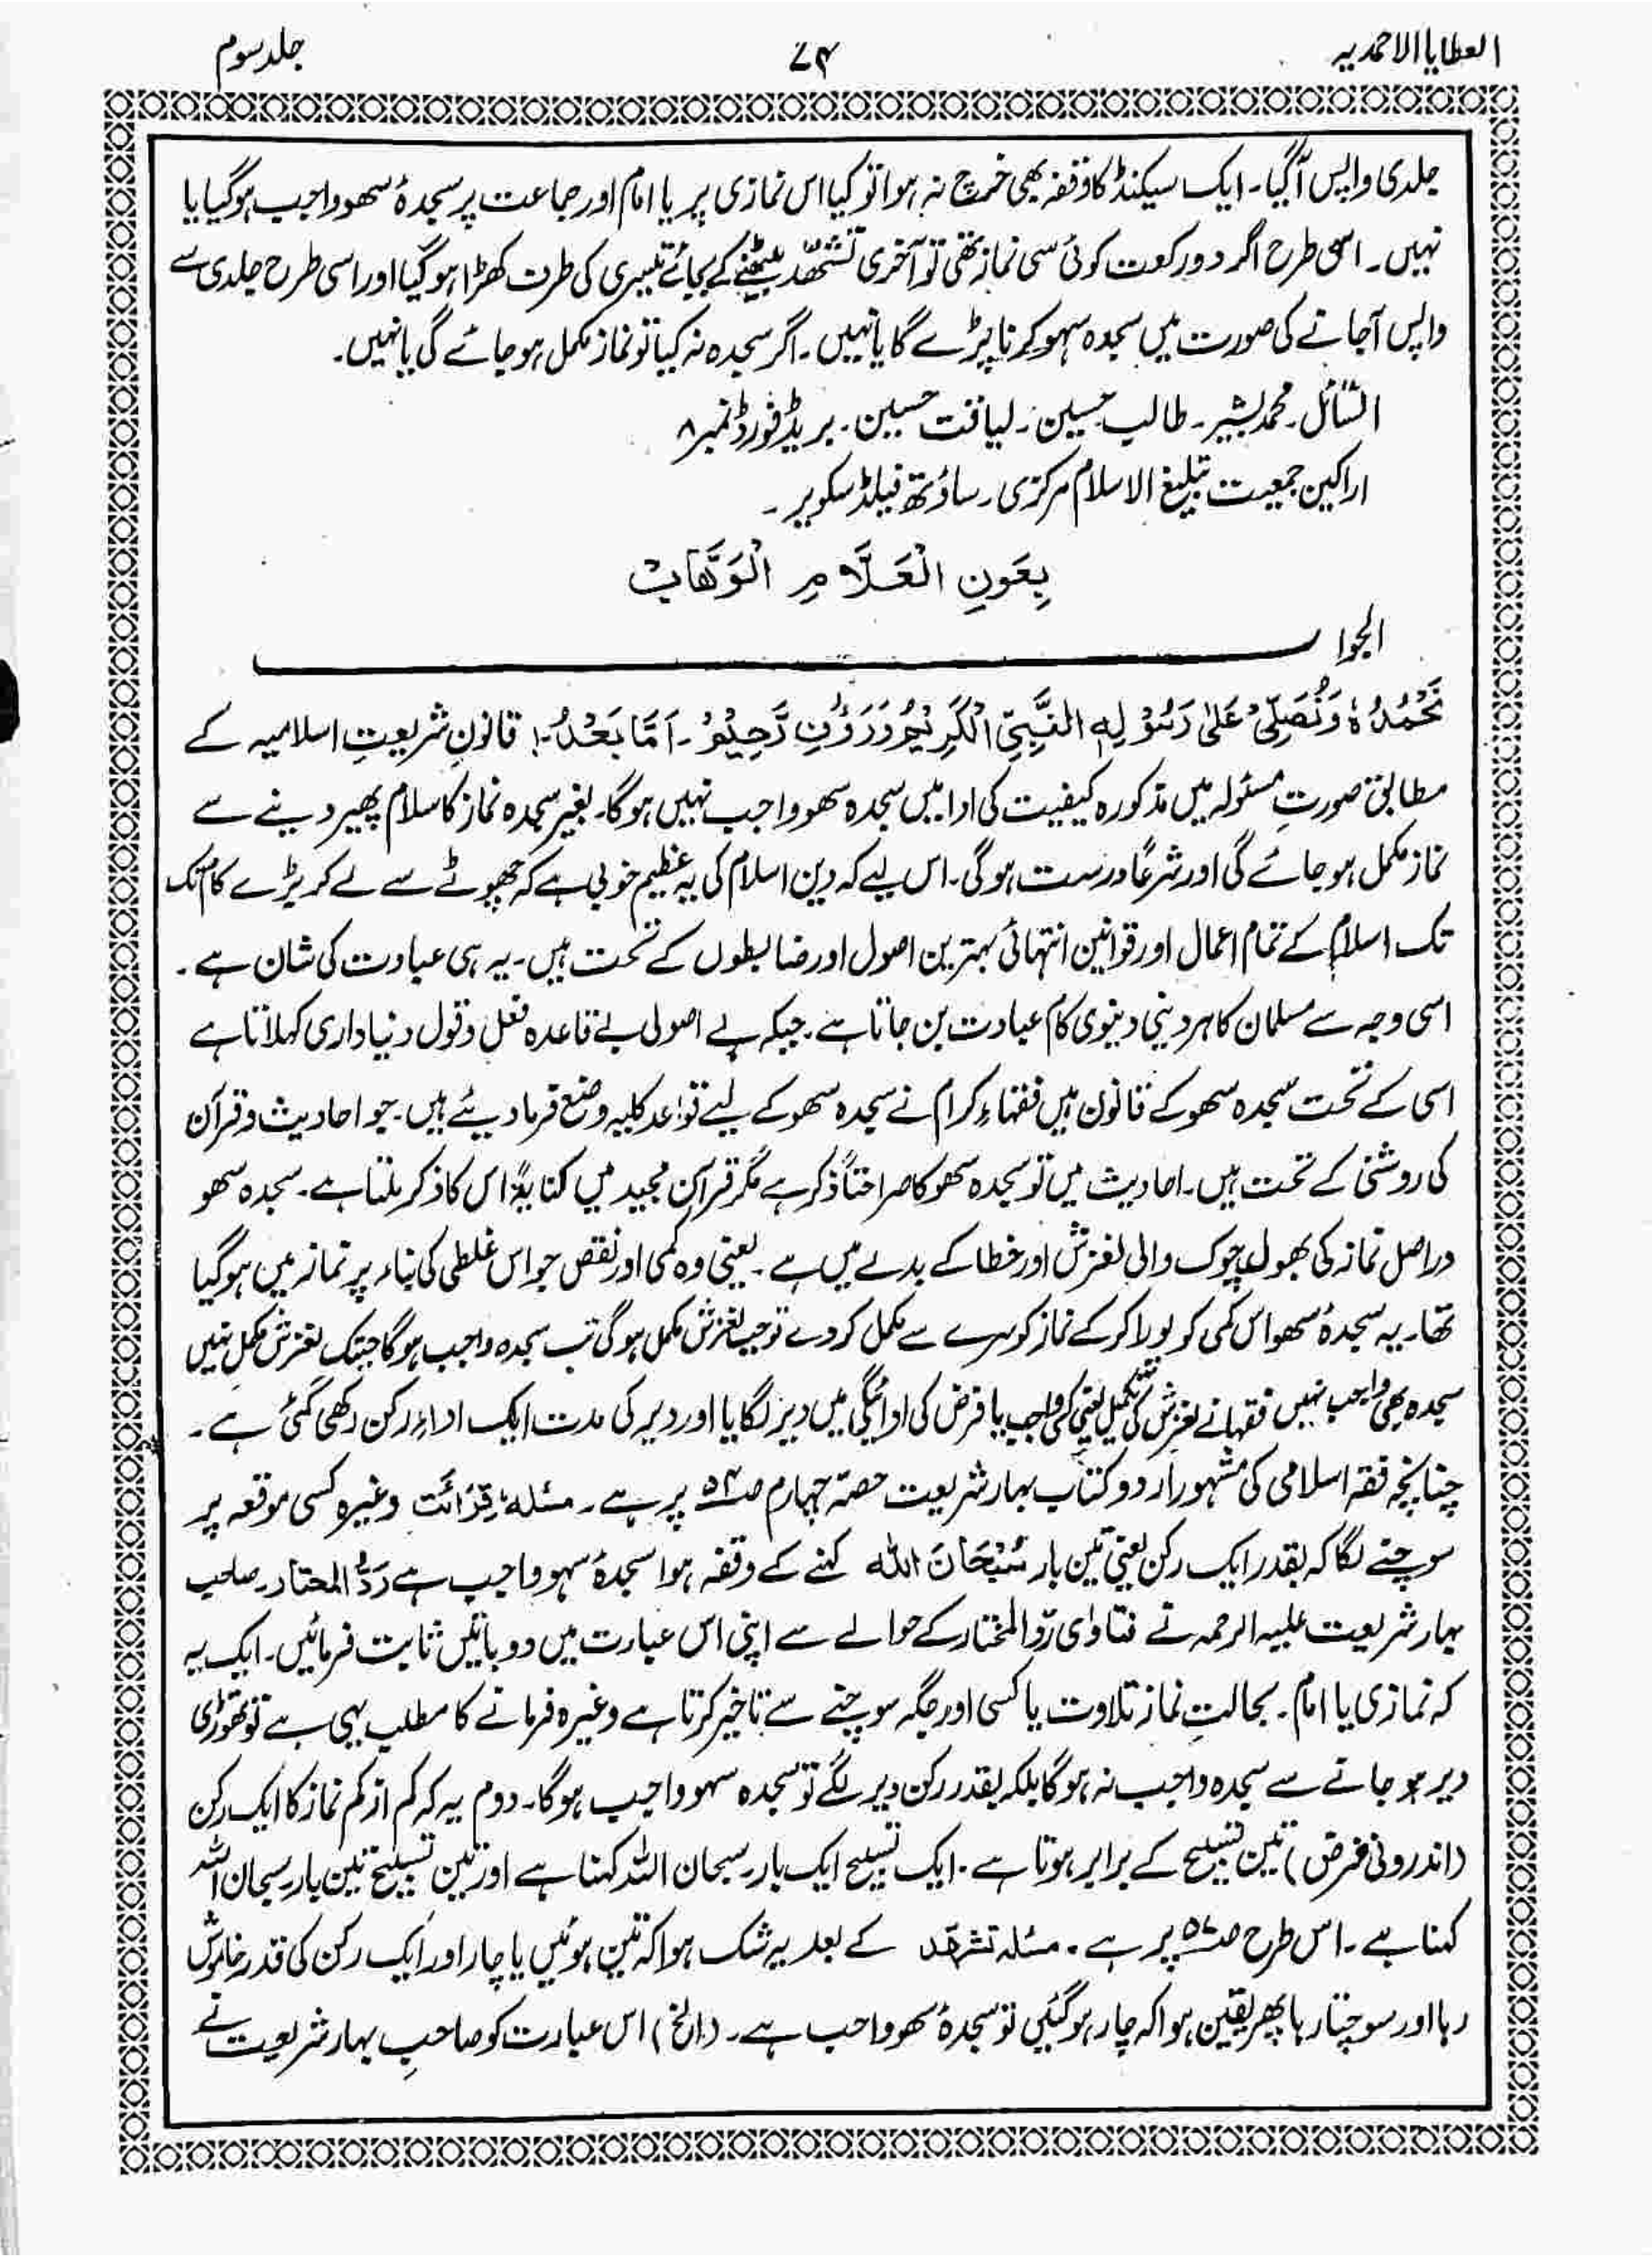 العطایا الاحمدیہ
۷۴
جلد سوم
جلدی واپس آگیا۔ ایک سیکنڈ کا وقفہ بھی خرچ نہ ہوا تو کیا اس نمازی پر یا امام اور جماعت پر سجدۂ سھو واجب ہو گیا یا
نہیں۔ اسی طرح اگر دو رکعت کوئی سی نماز تھی تو آخری تشھّد بیٹھنے کے بجائے تیسری کی طرف کھڑا ہو گیا اور اسی طرح جلدی سے
واپس آجانے کی صورت میں سجدہ سہو کرنا پڑے گا یا نہیں۔ اگر سجدہ نہ کیا تو نماز مکمل ہو جائے گی یا نہیں۔
السّائل۔ محمد بشیر۔ طالب حسین۔ لیاقت حسین۔ بریڈ فورڈ نمبر ۸
اراکین جمعیت تبلیغ الاسلام مرکزی۔ ساؤتھ فیلڈ سکویر۔
بِعَونِ الْعَلَّامِ الْوَهَّابْ
الجواب
نَحْمَدُہٗ وَنُصَلِّیْ عَلٰی رَسُوْلِهِ النَّبِیِّ الْکَرِیْمِ وَرَؤُفٍ رَّحِیْمٍ۔ اَمَّا بَعْدُ! قانونِ شریعتِ اسلامیہ کے
مطابق صورتِ مسئولہ میں مذکورہ کیفیت کی ادا میں سجدہ سھو واجب نہیں ہوگا۔ بغیر سجدہ نماز کا سلام پھیر دینے سے
نماز مکمل ہو جائے گی اور شرعًا درست ہوگی۔ اس لیے کہ دین اسلام کی یہ عظیم خوبی ہے کہ چھوٹے سے لے کر بڑے کام تک
تک اسلام کے تمام اعمال اور قوانین انتہائی بہترین اصول اور ضابطوں کے تحت ہیں۔ یہ ہی عبادت کی شان ہے۔
اسی وجہ سے مسلمان کا ہر دینی دنیوی کام عبادت بن جاتا ہے۔ جبکہ بے اصولی بے قاعدہ فعل و قول دنیاداری کہلاتا ہے
اسی کے تحت سجدہ سھو کے قانون میں فقہاءِ کرام نے سجدہ سھو کے لیے قواعد کلیہ وضع فرما دیئے ہیں۔ جو احادیث و قرآن
کی روشنی کے تحت ہیں۔ احادیث میں تو سجدہ سھو کا صراحتاً ذکر ہے مگر قرآن مجید میں کنایۃً اس کا ذکر ملتا ہے۔ سجدہ سھو
دراصل نماز کی بھول چوک والی لغزش اور خطا کے بدلے میں ہے۔ یعنی وہ کمی اور نقص جو اس غلطی کی بناء پر نماز میں ہو گیا
تھا۔ یہ سجدۂ سھو اس کمی کو پورا کر کے نماز کو سرے سے مکمل کر دے تو جب لغزش مکمل ہوگی تب سجدہ واجب ہوگا جبتک لغزش مکمل نہیں
سجدہ بھی واجب نہیں فقہا نے لغزش کی تکمیل یعنی کسی واجب یا فرض کی ادائیگی میں دیر لگایا اور دیر کی مدت ایک اداءِ رکن رکھی گئی ہے۔
چنانچہ فقہ اسلامی کی مشہور اردو کتاب بہار شریعت حصہ چہارم صـ۵۴ پر ہے۔ مسئلہ قِرَأت وغیرہ کسی موقعہ پر
سوچنے لگا کہ بقدر ایک رکن یعنی تین بار سُبْحَانَ اللہ کہنے کے وقفہ ہوا سجدۂ سہو واجب ہے رَدُّ المحتار۔ صاحب
بہار شریعت علیہ الرحمہ نے فتاوٰی ردّ المختار کے حوالے سے اپنی اس عبارت میں دو باتیں ثابت فرمائیں۔ ایک یہ
کہ نمازی یا امام۔ بحالتِ نماز تلاوت یا کسی اور جگہ سوچنے سے تاخیر کرتا ہے وغیرہ فرمانے کا مطلب یہی ہے تو تھوڑی
دیر ہو جانے سے سجدہ واجب نہ ہوگا بلکہ بقدر رکن دیر لگے تو سجدہ سہو واجب ہوگا۔ دوم یہ کہ کم از کم نماز کا ایک رکن
(اندرونی فرض) تین تسبیح کے برابر ہوتا ہے۔ ایک تسبیح ایک بار سبحان اللہ کہنا ہے اور تین تسبیح تین بار سبحان اللہ
کہنا ہے۔ اس طرح صـ پر ہے۔ مسئلہ تشہّد کے بعد یہ شک ہوا کہ تین ہوئیں یا چار اور ایک رکن کی قدر خاموش
رہا اور سوچتا رہا پھر یقین ہوا کہ چار ہو گئیں تو سجدۂ سھو واجب ہے۔ (الخ) اس عبارت کو صاحبِ بہار شریعت نے